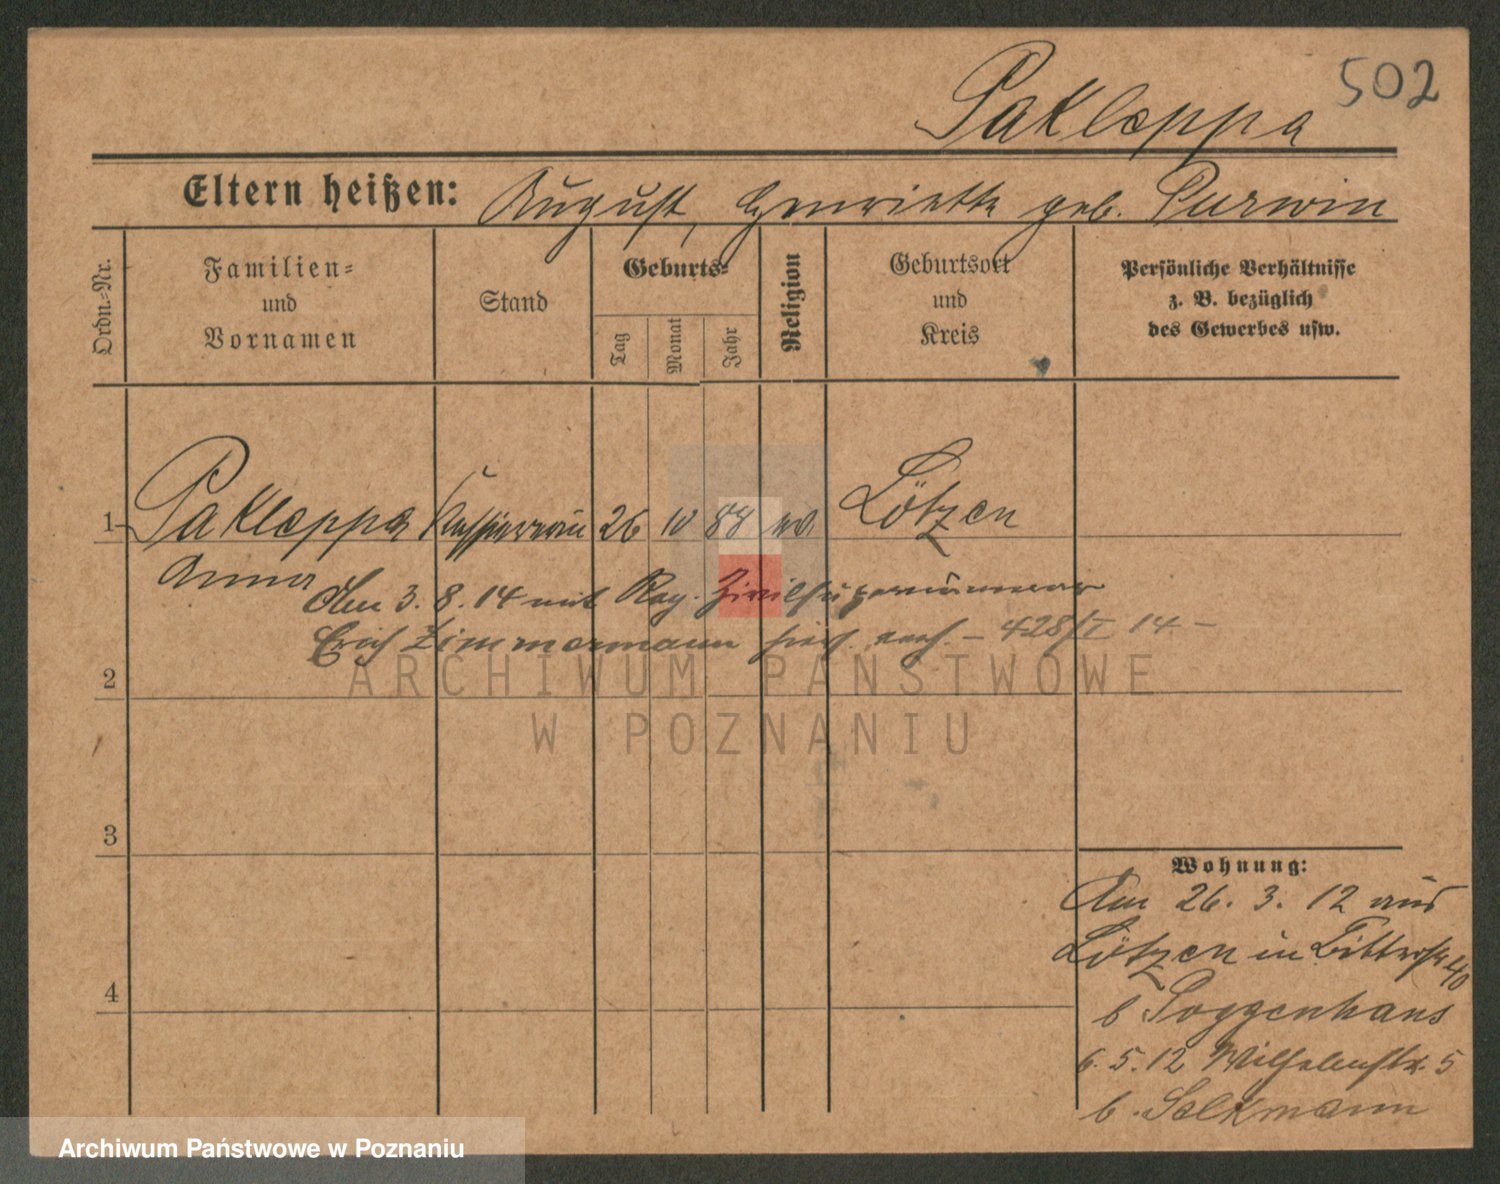 502
Pakleppa
Eltern heißen: August, Henriette geb. Purwin
Ordn.-Nr.
Familien-
und
Vornamen
Stand
Geburts-
Tag
Monat
Jahr
Religion
Geburtsort
und
Kreis
Persönliche Verhältnisse
z. B. bezüglich
des Gewerbes usw.
1 Pakleppa Kassiererin 26 10 88 ev. Lötzen
Anna
Am 3. 8. 14 mit Reg. Zivilsupernumerar
Erich Zimmermann hier verh. – 428/I 14 –
2
3
4
Wohnung:
Am 26. 3. 12 aus
Lötzen in 40
b Poggenhans
6. 5. 12 Wilhelmstr. 5
b. Selkmann
ARCHIWUM PAŃSTWOWE
W POZNANIU
Archiwum Państwowe w Poznaniu